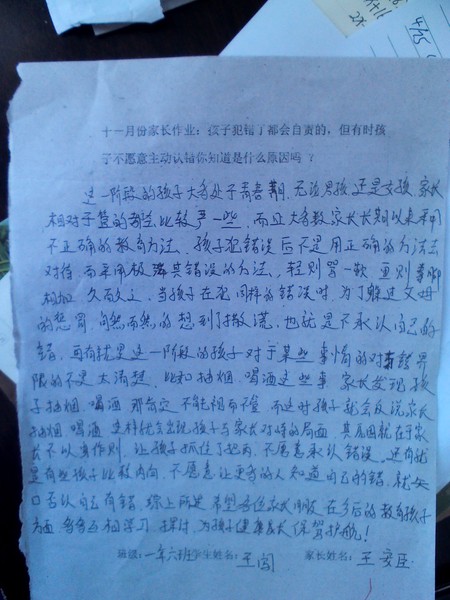 十一月份家长作业：孩子犯错了都会自责的，但有时孩
子不愿意主动认错你知道是什么原因吗？
这一阶段的孩子大多处于青春期，无论男孩还是女孩，家长
相对于管的都比较严一些，而且大多数家长长期以来采用
不正确的教育方法，孩子犯错误后不是用正确的方法去
对待，而采用极其错误的方法，轻则骂一顿 重则拳脚
相加，久而久之，当孩子在犯同样的错误时，为了躲过父母
的惩罚，自然而然的想到了撒谎，也就是不承认自己的
错，再有就是这一阶段的孩子对于某些事情的对错界
限的不是太清楚，比如抽烟、喝酒这些事，家长发现孩
子抽烟、喝酒 那肯定不能视而不管，而这时孩子就会反说家长
抽烟、喝酒，这样就会出现孩子与家长对峙的局面，其原因就在于家
长不以身作则，让孩子抓住了把柄，不愿意承认错误，还有就
是有些孩子比较内向，不愿意让更多的人知道自己的错，就矢
口否认自己有错，综上所述 希望各位家长朋友在今后的教育孩子
方面，多多互相学习、探讨，为孩子健康成长保驾护航！
班级：一年六班 学生姓名：王闯 家长姓名：王
4/25